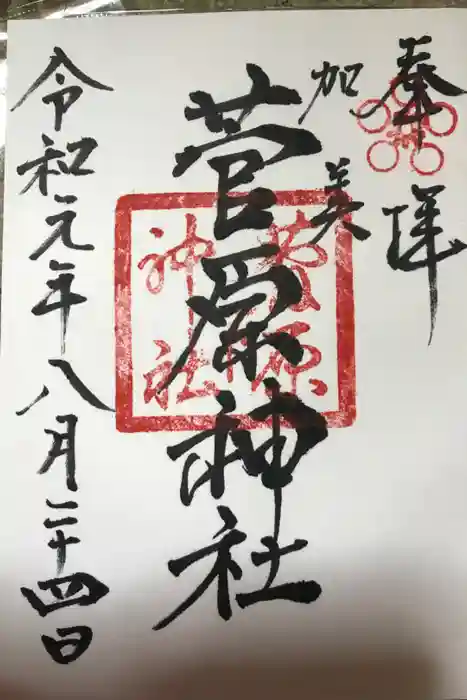 奉拝
加美
菅原神社
菅原
神社
令和元年八月二十四日